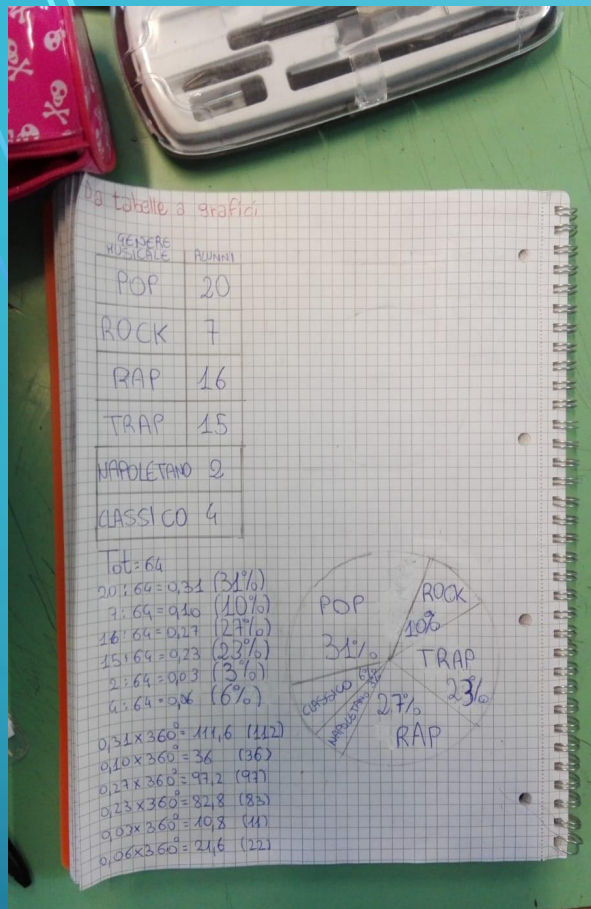 Da tabelle a grafici
GENERE MUSICALE ALUNNI
POP 20
ROCK 7
RAP 16
TRAP 15
NAPOLETANO 2
CLASSICO 4
Tot: 64
20 : 64 = 0,31 (31%)
7 : 64 = 0,10 (10%)
16 : 64 = 0,27 (27%)
15 : 64 = 0,23 (23%)
2 : 64 = 0,03 (3%)
4 : 64 = 0,06 (6%)
0,31 x 360° = 111,6 (112)
0,10 x 360° = 36 (36)
0,27 x 360° = 97,2 (97)
0,23 x 360° = 82,8 (83)
0,03 x 360° = 10,8 (11)
0,06 x 360° = 21,6 (22)
POP
31%
ROCK
10%
TRAP
23%
CLASSICO 6%
NAPOLETANO 3%
27%
RAP